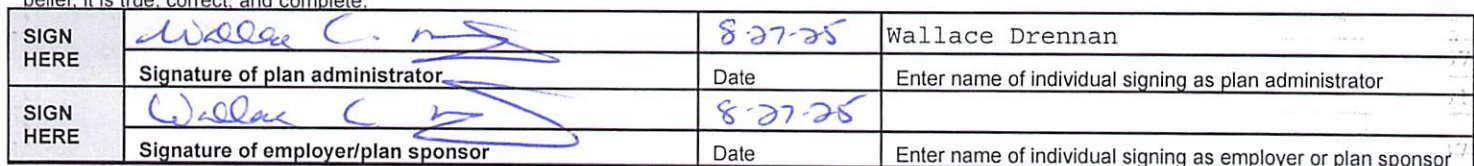 belief, it is true, correct, and complete.
SIGN HERE Wallace C. 8-27-25 Wallace Drennan
Signature of plan administrator Date Enter name of individual signing as plan administrator
SIGN HERE Wallace C 8-27-25
Signature of employer/plan sponsor Date Enter name of individual signing as employer or plan sponsor